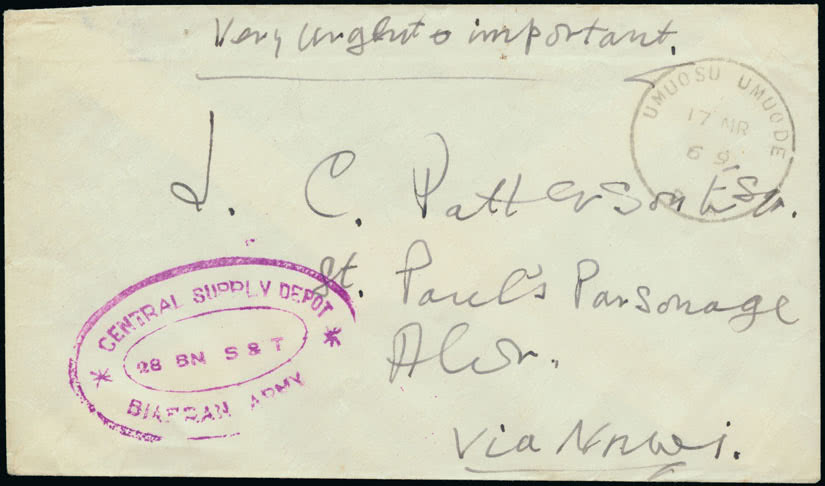 Very urgent & important.
UMUOSU UMUODE
17 MR
69
J. C. Patterson Esq.
St. Paul's Parsonage
Alor.
Via Nnewi.
CENTRAL SUPPLY DEPOT
28 BN S & T
BIAFRAN ARMY